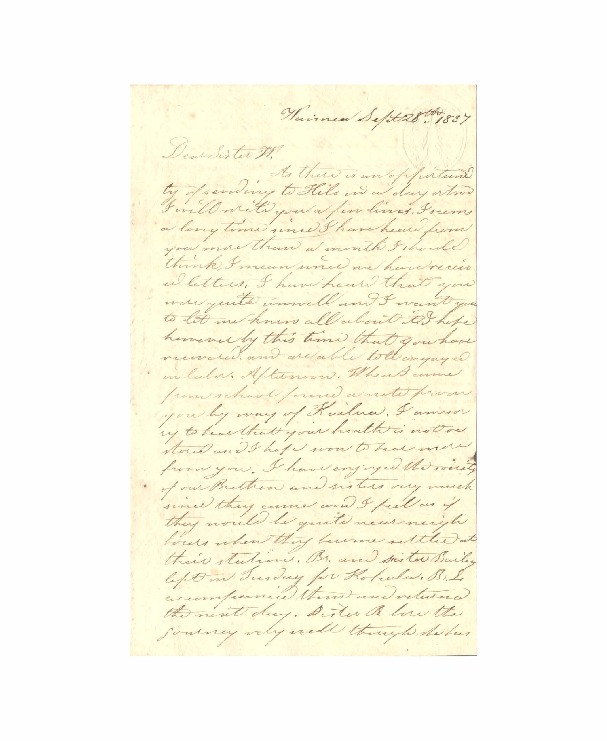 Waimea Sept 28th 1837
Dear Sister W.
As there is an opportuni
ty of sending to Hilo in a day or two
I will write you a few lines. It seems
a long time since I have heard from
you more than a month I should
think I mean since we have receiv
ed letters. I have heard that you
were quite unwell and I want you
to let me know all about it. I hope
however by this time that you have
recovered and are able to be engaged
in labor. Afternoon. When I came
from school found a note from
you by way of Kailua. I am sor
ry to hear that your health is not re
stored and I hope soon to hear more
from you. I have enjoyed the society
of our Brethren and sisters very much
since they came and I feel as if
they would be quite near neigh
bours when they become settled at
their station. Br. and sister Bailey
left on Tuesday for Kohala. B. L.
accompanied them and returned
the next day. Sister B. bore the
journey very well though she has